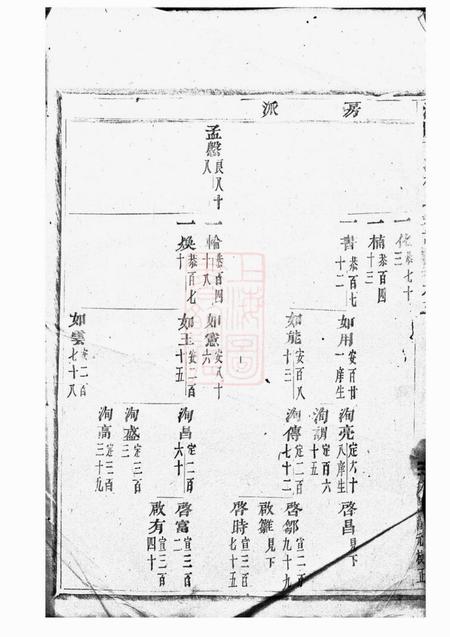 房派
一化恭七十三
一楠恭百四十三
一書恭百七十二
如用安百廿一庠生
洵亮定六十八庠生
啓昌見下
洵謂定百六十五
如能安百八十三
洵傳定二百七十二
啓鄒宣二百九十九
啟雛見下
啓時宣三百七十五
孟磬良八十八
一輪恭百四十八
如憲安八十六
一煥恭百七十
如玉安二百十五
洵昌定二百六十
啓富宣三百二
啟有宣三百四十
洵盛定三百三
洵高定三百三十九
如雲安二百七十八
上海圖